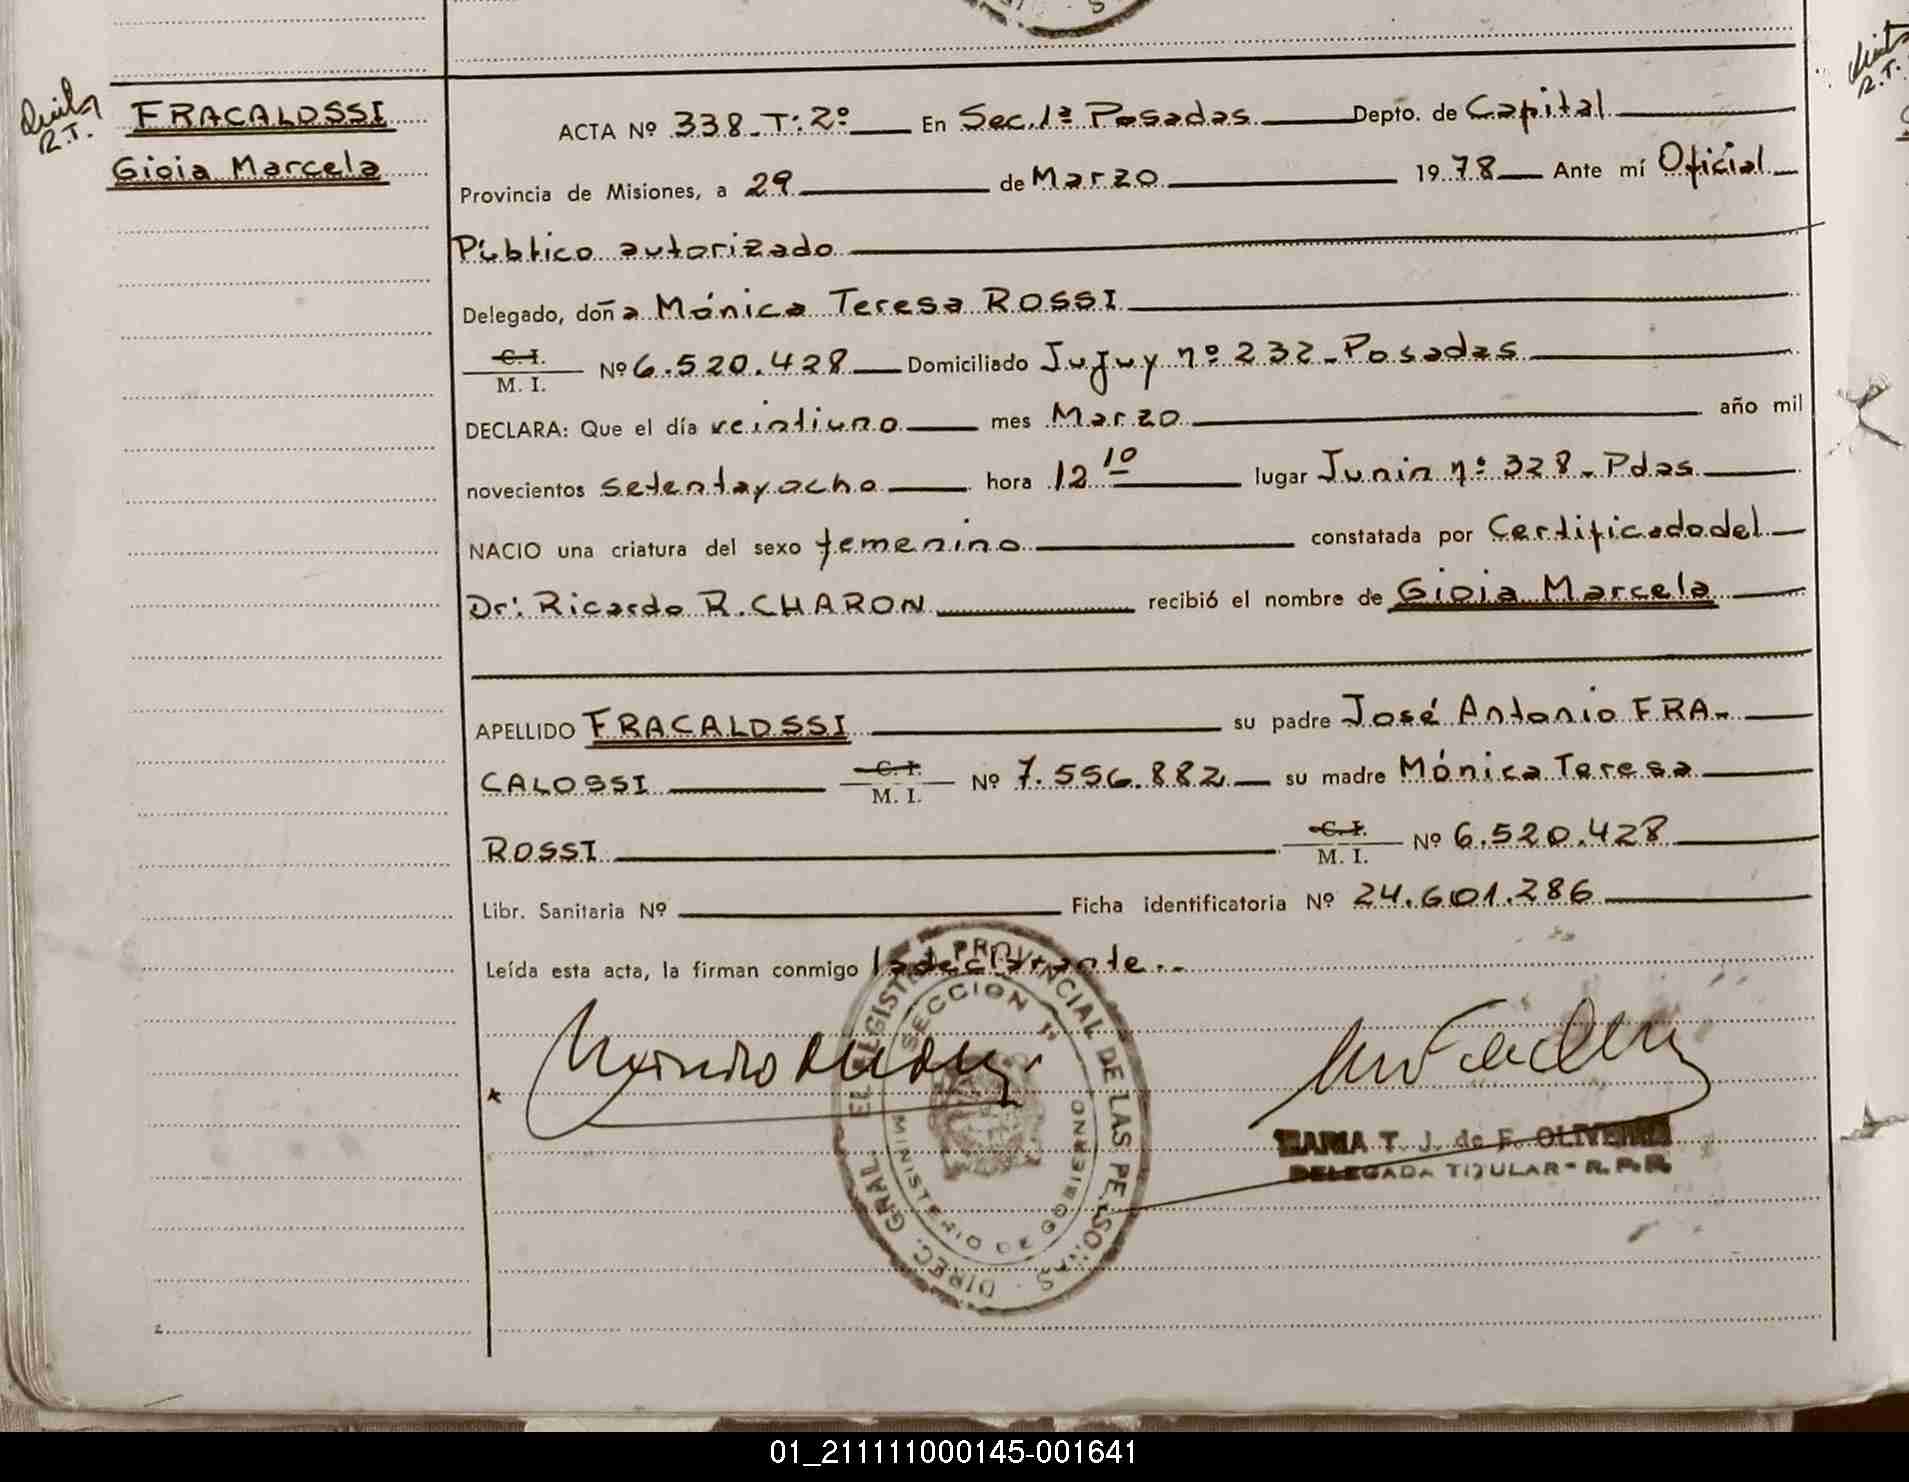 FRACALOSSI
Gioia Marcela
R.T.
ACTA Nº 338-T:2º En Sec.1ª Posadas Depto. de Capital
Provincia de Misiones, a 29 de Marzo 1978 Ante mí Oficial
Público autorizado
Delegado, doña Mónica Teresa ROSSI
C.I.
M. I. Nº 6.520.428 Domiciliado Jujuy nº 232-Posadas
DECLARA: Que el día veintiuno mes Marzo año mil
novecientos setentayocho hora 12 10 lugar Junin nº 328-Pdas
NACIO una criatura del sexo femenino constatada por Certificadodel
Dr: Ricardo R. CHARON recibió el nombre de Gioia Marcela
APELLIDO FRACALOSSI su padre José Antonio FRA-
CALOSSI C.I. M. I. Nº 7.556.882 su madre Mónica Teresa
ROSSI C.I. M. I. Nº 6.520.428
Libr. Sanitaria Nº Ficha identificatoria Nº 24.601.286
Leída esta acta, la firman conmigo la declarante.-
DIREC. GRAL. DEL REGISTRO PROVINCIAL DE LAS PERSONAS
SECCION 1ª
MINISTERIO DE GOBIERNO
MARIA T. J. de F. OLIVEIRA
DELEGADA TITULAR - R. P. P.
R.T.
01_211111000145-001641